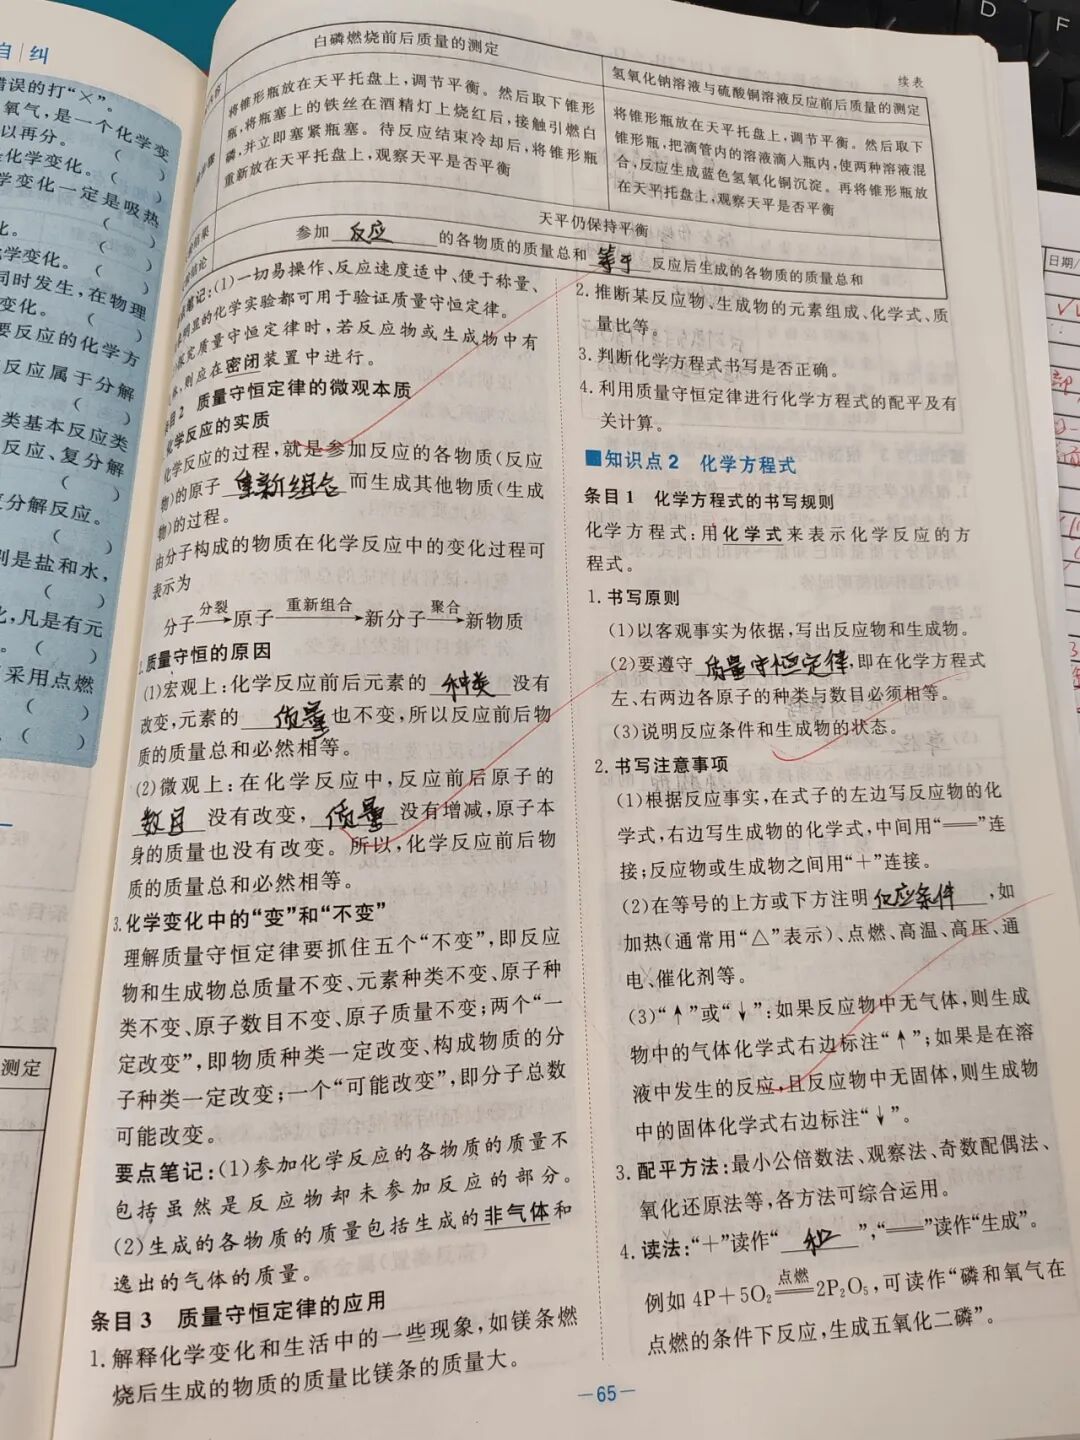 自纠
错误的打“×”。
氧气,是一个化学变
以再分。( )
化学变化。( )
学变化一定是吸热
( )
化。( )
化学变化。( )
同时发生,在物理
变化。( )
要反应的化学方
( )
反应属于分解
( )
类基本反应类
反应、复分解
( )
分解反应。
( )
则是盐和水,
( )
化,凡是有元
( )
采用点燃
( )
( )
测定
续表
白磷燃烧前后质量的测定
氢氧化钠溶液与硫酸铜溶液反应前后质量的测定
将锥形瓶放在天平托盘上,调节平衡。然后取下锥形
瓶,将瓶塞上的铁丝在酒精灯上烧红后,接触引燃白
磷,并立即塞紧瓶塞。待反应结束冷却后,将锥形瓶
重新放在天平托盘上,观察天平是否平衡
将锥形瓶放在天平托盘上,调节平衡。然后取下
锥形瓶,把滴管内的溶液滴入瓶内,使两种溶液混
合,反应生成蓝色氢氧化铜沉淀。再将锥形瓶放
在天平托盘上,观察天平是否平衡
天平仍保持平衡
参加 反应 的各物质的质量总和 等于 反应后生成的各物质的质量总和
笔记:(1)一切易操作、反应速度适中、便于称量、
明显的化学实验都可用于验证质量守恒定律。
究质量守恒定律时,若反应物或生成物中有
,则应在密闭装置中进行。
条目2 质量守恒定律的微观本质
化学反应的实质
化学反应的过程,就是参加反应的各物质(反应
物)的原子 重新组合 而生成其他物质(生成
物)的过程。
由分子构成的物质在化学反应中的变化过程可
表示为
分子 分裂→ 原子 重新组合→ 新分子 聚合→ 新物质
2.质量守恒的原因
(1)宏观上:化学反应前后元素的 种类 没有
改变,元素的 质量 也不变,所以反应前后物
质的质量总和必然相等。
(2)微观上:在化学反应中,反应前后原子的
数目 没有改变, 质量 没有增减,原子本
身的质量也没有改变。所以,化学反应前后物
质的质量总和必然相等。
3.化学变化中的“变”和“不变”
理解质量守恒定律要抓住五个“不变”,即反应
物和生成物总质量不变、元素种类不变、原子种
类不变、原子数目不变、原子质量不变;两个“一
定改变”,即物质种类一定改变、构成物质的分
子种类一定改变;一个“可能改变”,即分子总数
可能改变。
要点笔记:(1)参加化学反应的各物质的质量不
包括虽然是反应物却未参加反应的部分。
(2)生成的各物质的质量包括生成的非气体和
逸出的气体的质量。
条目3 质量守恒定律的应用
1.解释化学变化和生活中的一些现象,如镁条燃
烧后生成的物质的质量比镁条的质量大。
2.推断某反应物、生成物的元素组成、化学式、质
量比等。
3.判断化学方程式书写是否正确。
4.利用质量守恒定律进行化学方程式的配平及有
关计算。
■知识点2 化学方程式
条目1 化学方程式的书写规则
化学方程式:用化学式来表示化学反应的方
程式。
1.书写原则
(1)以客观事实为依据,写出反应物和生成物。
(2)要遵守 质量守恒定律,即在化学方程式
左、右两边各原子的种类与数目必须相等。
(3)说明反应条件和生成物的状态。
2.书写注意事项
(1)根据反应事实,在式子的左边写反应物的化
学式,右边写生成物的化学式,中间用“══”连
接;反应物或生成物之间用“+”连接。
(2)在等号的上方或下方注明 反应条件 ,如
加热(通常用“△”表示)、点燃、高温、高压、通
电、催化剂等。
(3)“↑”或“↓”:如果反应物中无气体,则生成
物中的气体化学式右边标注“↑”;如果是在溶
液中发生的反应,且反应物中无固体,则生成物
中的固体化学式右边标注“↓”。
3.配平方法:最小公倍数法、观察法、奇数配偶法、
氧化还原法等,各方法可综合运用。
4.读法:“+”读作“ 和 ”,“══”读作“生成”。
例如 4P+5O₂ 点燃══ 2P₂O₅,可读作“磷和氧气在
点燃的条件下反应,生成五氧化二磷”。
—65—
日期/
D
F